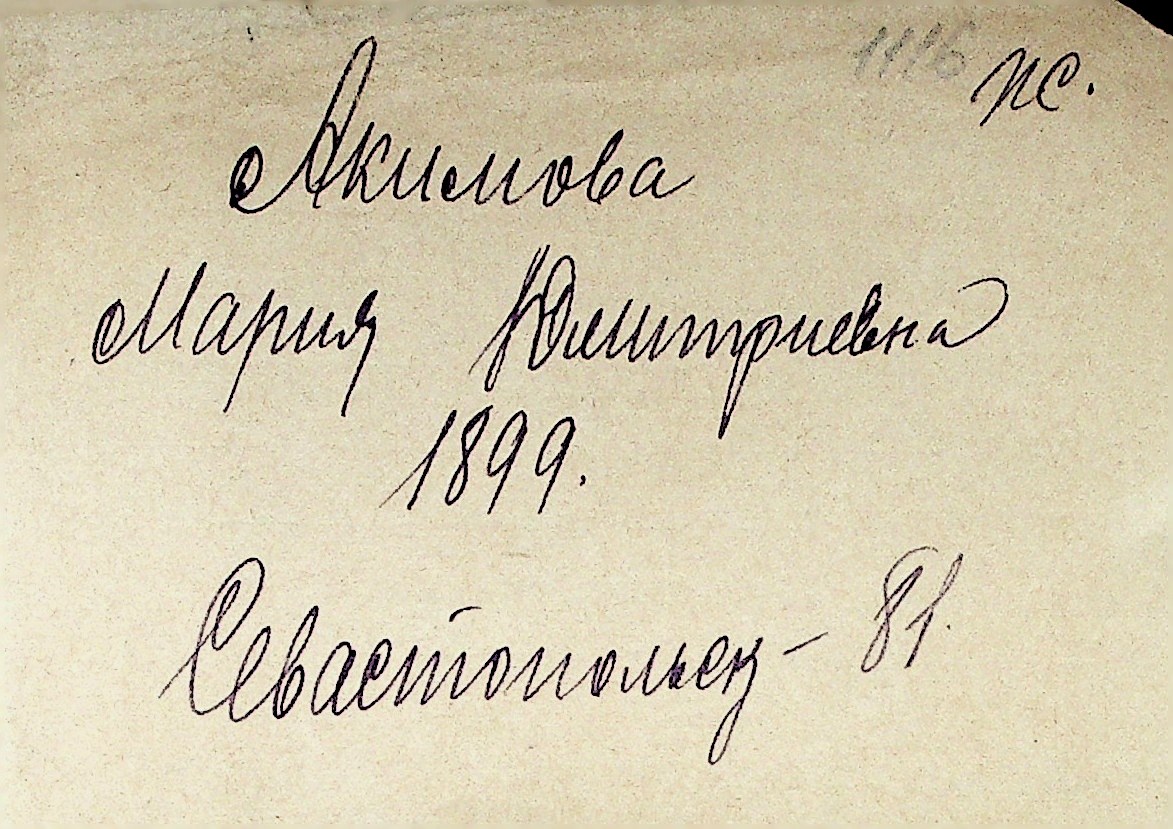 1116 ж.
Акимова
Мария Дмитриевна
1899.
Севастопольск - 81.